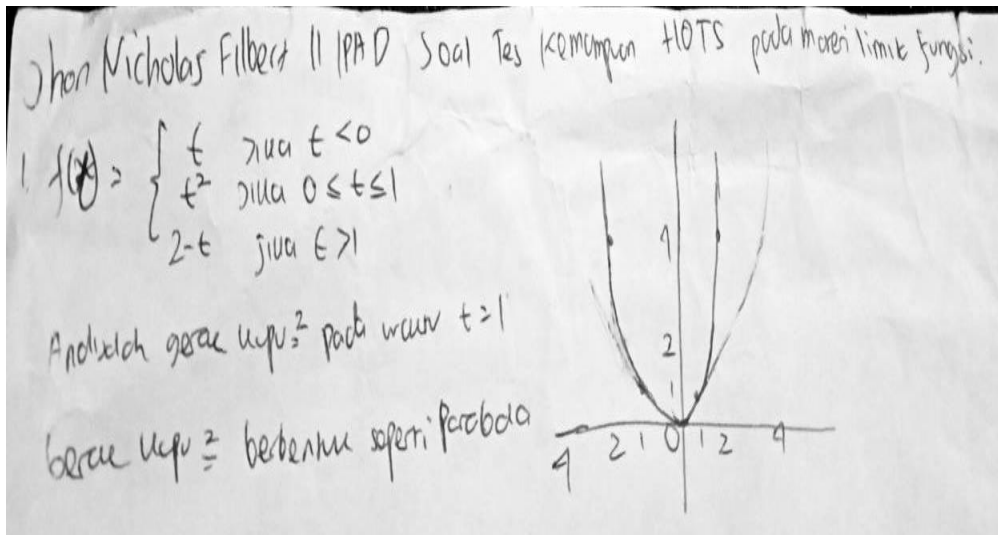 Jhon Nicholas Filbert 11 IPA D Soal Tes Kemampuan HOTS pada materi limit fungsi.
1. f(x) = { t jika t < 0
t² jika 0 ≤ t ≤ 1
2-t jika t > 1
Analisalah gerak kupu² pada waktu t = 1
Gerak kupu² berbentuk seperti Parabola
4
2
1
4 2 1 0 1 2 4